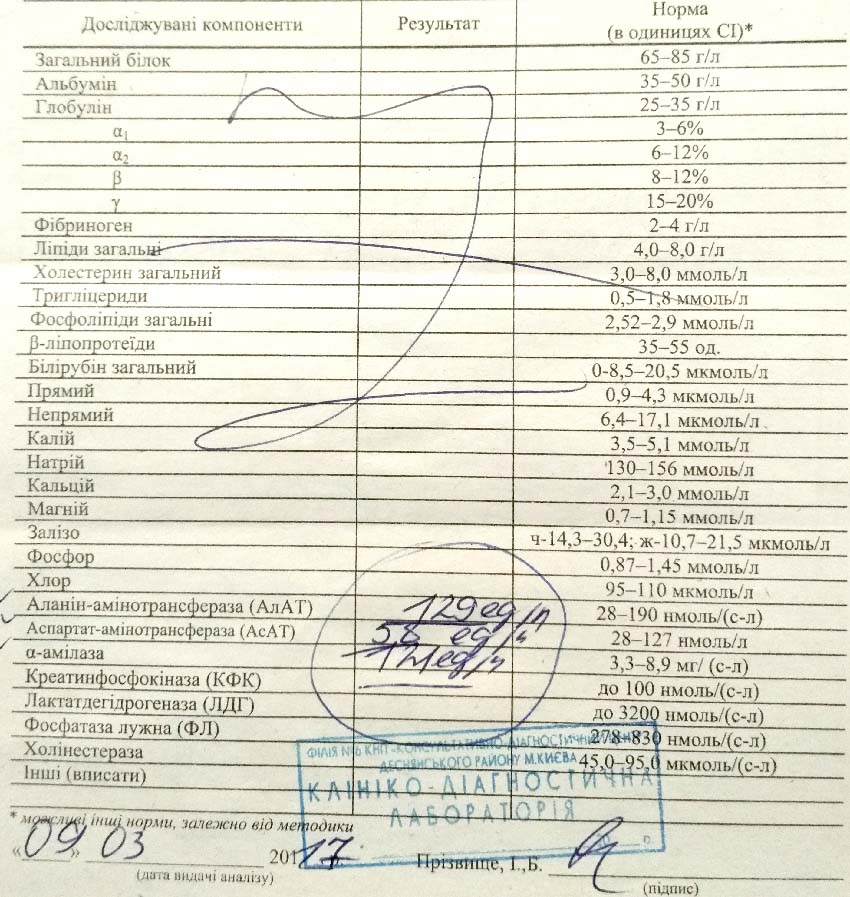 Досліджувані компоненти Результат Норма (в одиницях СІ)*
Загальний білок 65–85 г/л
Альбумін 35–50 г/л
Глобулін 25–35 г/л
α1 3–6%
α2 6–12%
β 8–12%
γ 15–20%
Фібриноген 2–4 г/л
Ліпіди загальні 4,0–8,0 г/л
Холестерин загальний 3,0–8,0 ммоль/л
Тригліцериди 0,5–1,8 ммоль/л
Фосфоліпіди загальні 2,52–2,9 ммоль/л
β-ліпопротеїди 35–55 од.
Білірубін загальний 0-8,5–20,5 мкмоль/л
Прямий 0,9–4,3 мкмоль/л
Непрямий 6,4–17,1 мкмоль/л
Калій 3,5–5,1 ммоль/л
Натрій 130–156 ммоль/л
Кальцій 2,1–3,0 ммоль/л
Магній 0,7–1,15 ммоль/л
Залізо ч-14,3–30,4; ж-10,7–21,5 мкмоль/л
Фосфор 0,87–1,45 ммоль/л
Хлор 95–110 мкмоль/л
Аланін-амінотрансфераза (АлАТ) 129 ед/л 28–190 нмоль/(с-л)
Аспартат-амінотрансфераза (АсАТ) 58 ед/л 28–127 нмоль/л
α-амілаза ед/л 3,3–8,9 мг/ (с-л)
Креатинфосфокіназа (КФК) до 100 нмоль/(с-л)
Лактатдегідрогеназа (ЛДГ) до 3200 нмоль/(с-л)
Фосфатаза лужна (ФЛ) 278–830 нмоль/(с-л)
Холінестераза 45,0–95,0 мкмоль/(с-л)
Інші (вписати)
ФІЛІЯ №6 КНП «КОНСУЛЬТАТИВНО-ДІАГНОСТИЧНИЙ
ДЕСНЯНСЬКОГО РАЙОНУ М.КИЄВА
КЛІНІКО-ДІАГНОСТИЧНА
ЛАБОРАТОРІЯ
* можливі інші норми, залежно від методики
«09» 03 2017 р. Прізвище, І.,Б.
(дата видачі аналізу) (підпис)